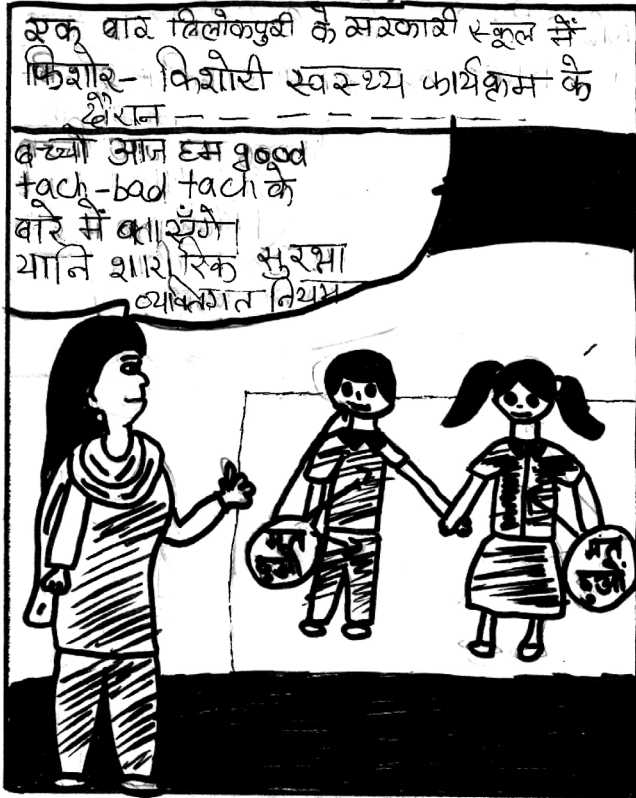 एक बार त्रिलोकपुरी के सरकारी स्कूल में
किशोर- किशोरी स्वस्थ्य कार्यक्रम के
दौरान — — — — — — — —
बच्चों आज हम good
tach-bad tach के
बारे में बताएँगे।
यानि शारीरिक सुरक्षा
व्यक्तिगत नियम
मत
छुओ
मत
छुओ